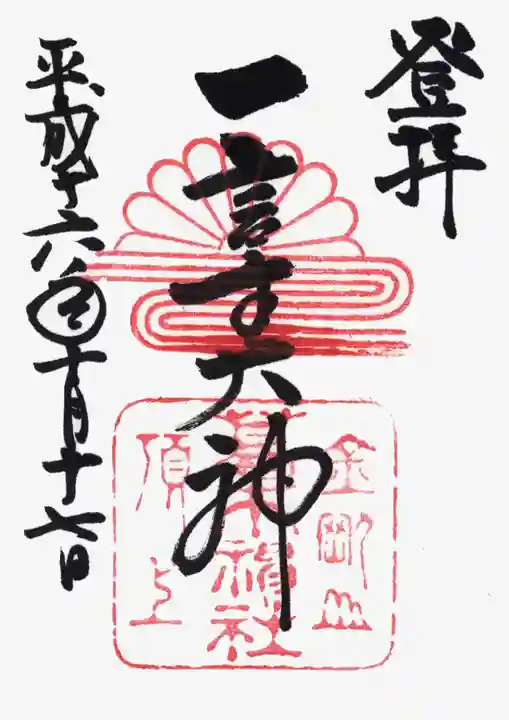 登拝
一言主大神
平成十六年十月十七日
金剛山
葛木神社
頂上